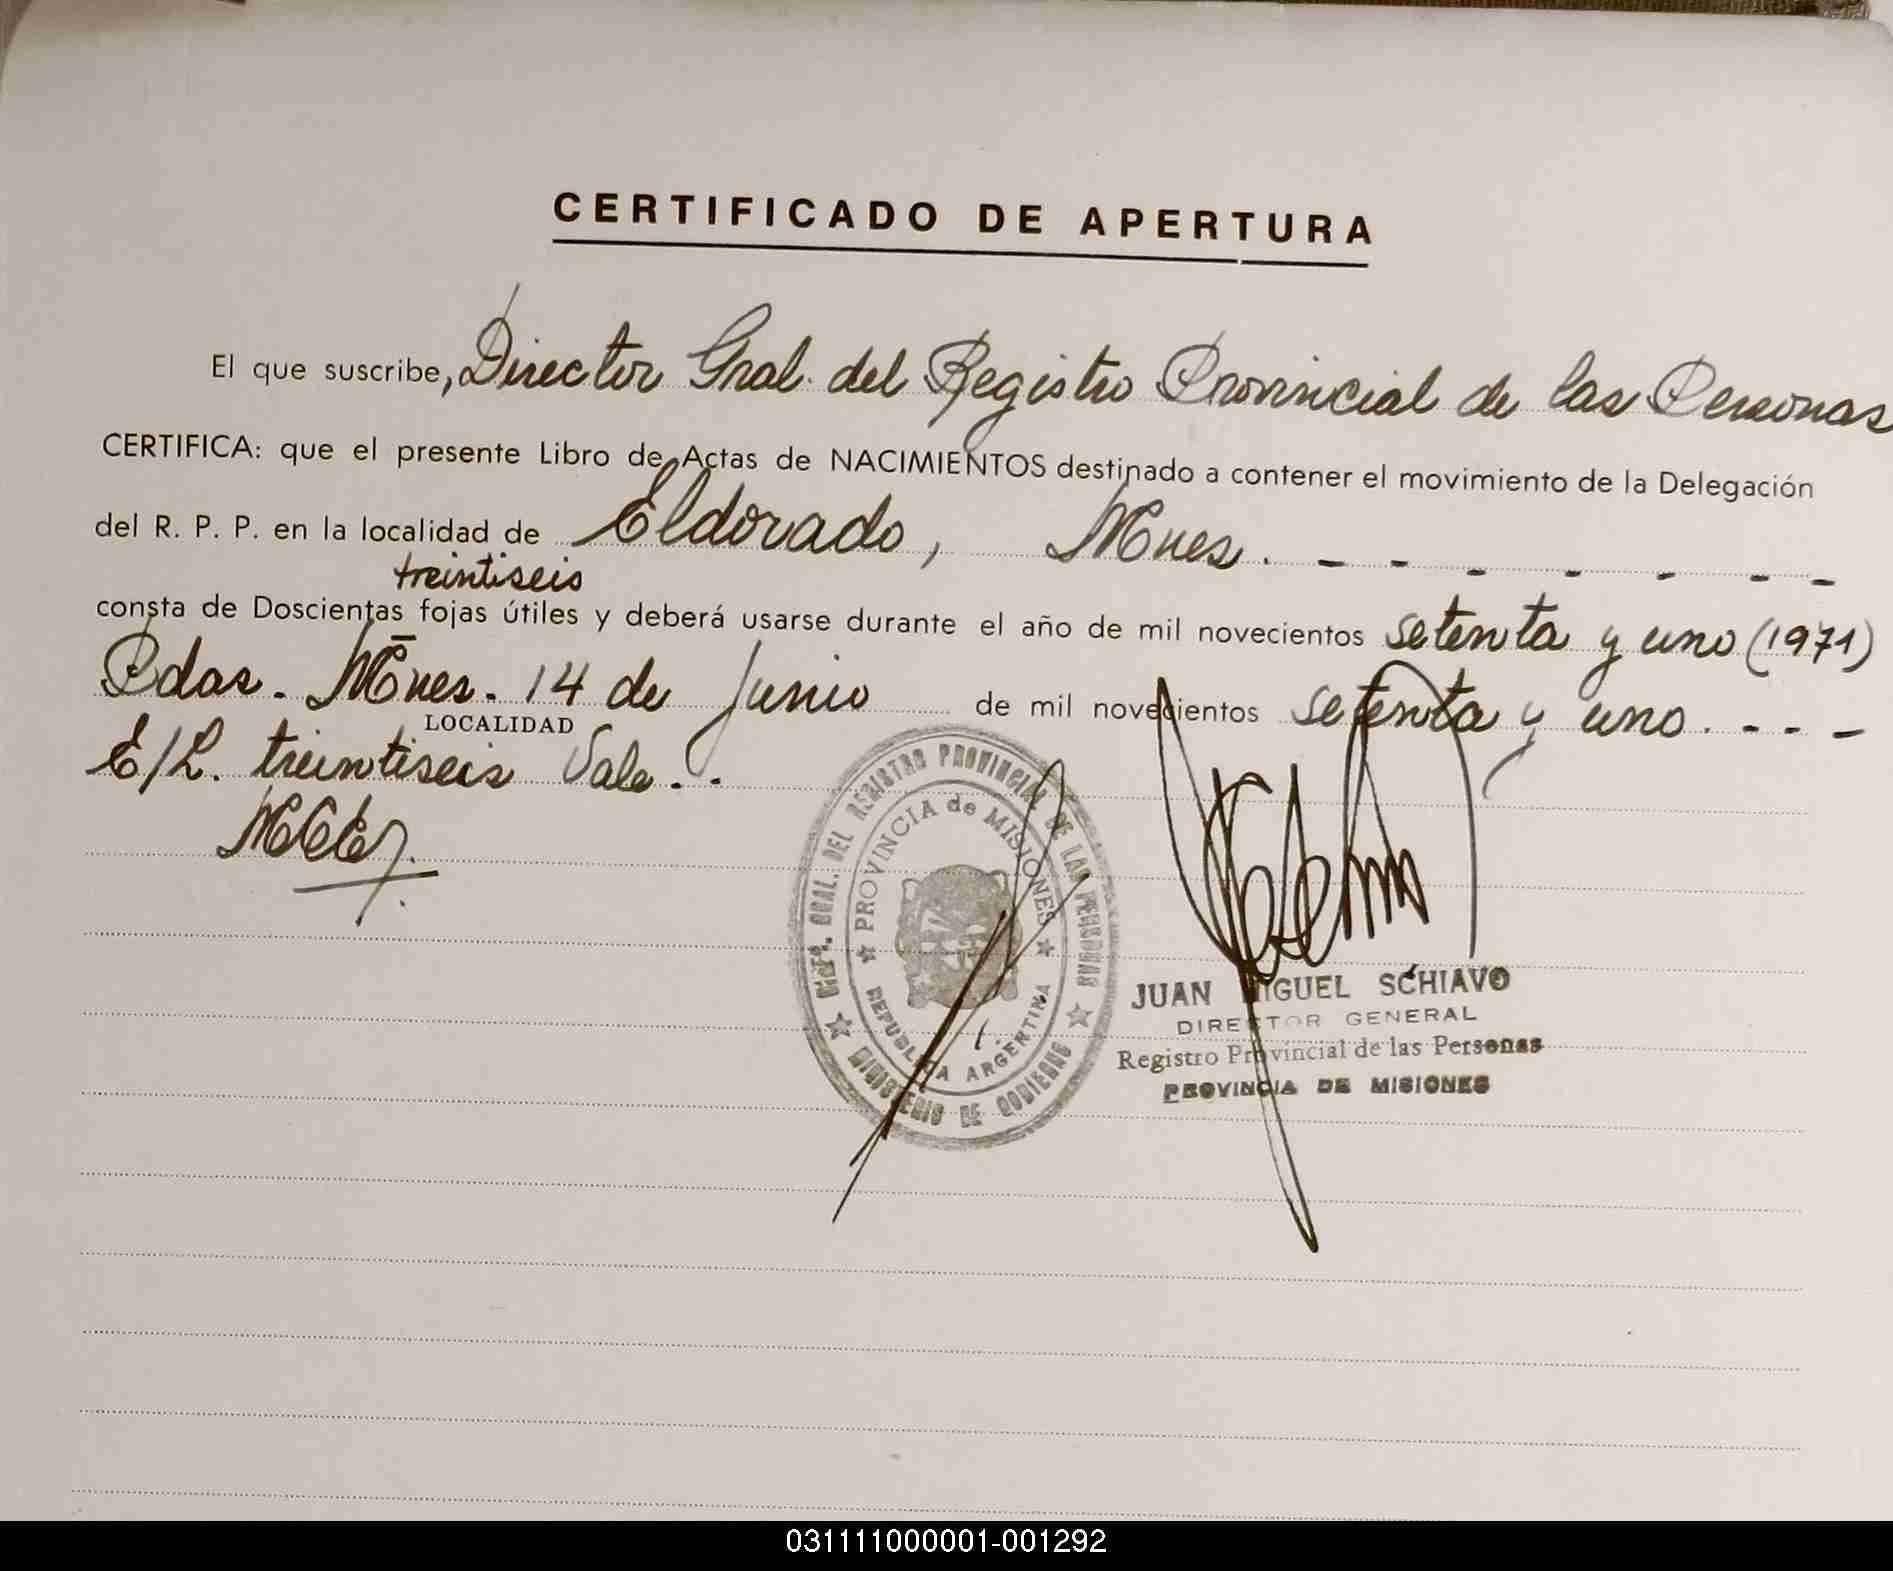 CERTIFICADO DE APERTURA
El que suscribe, Director Gral. del Registro Provincial de las Personas
CERTIFICA: que el presente Libro de Actas de NACIMIENTOS destinado a contener el movimiento de la Delegación
del R. P. P. en la localidad de Eldorado, Mnes. - - - - - - -
treintiseis
consta de Doscientas fojas útiles y deberá usarse durante el año de mil novecientos setenta y uno (1971)
Pdas. Mnes. 14 de Junio de mil novecientos setenta y uno. - - -
LOCALIDAD
E/L. treintiseis Vale. -
DIREC. GRAL. DEL REGISTRO PROVINCIAL DE LAS PERSONAS
PROVINCIA de MISIONES
REPUBLICA ARGENTINA
MINISTERIO DE GOBIERNO
JUAN MIGUEL SCHIAVO
DIRECTOR GENERAL
Registro Provincial de las Personas
PROVINCIA DE MISIONES
031111000001-001292